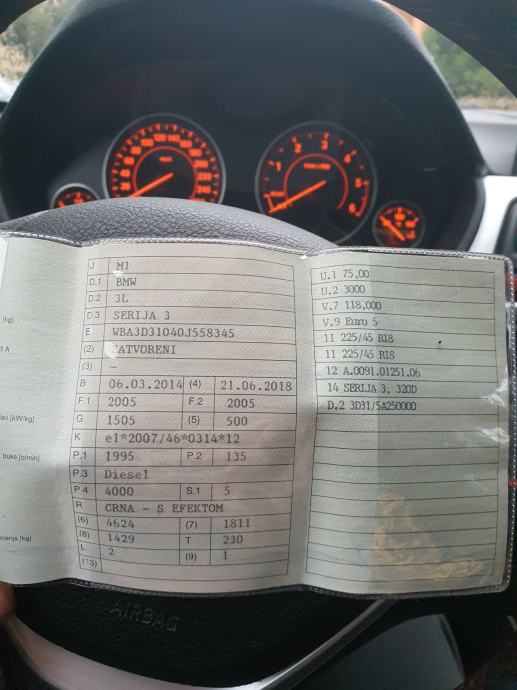 J M1
D.1 BMW
D.2 3L
D.3 SERIJA 3
E WBA3D31040J558345
(2) ZATVORENI
(3) -
B 06.03.2014 (4) 21.06.2018
F.1 2005 F.2 2005
G 1505 (5) 500
K e1*2007/46*0314*12
P.1 1995 P.2 135
P.3 Diesel
P.4 4000 S.1 5
R CRNA - S EFEKTOM
(6) 4624 (7) 1811
(8) 1429 T 230
L 2 (9) 1
(13)
U.1 75,00
U.2 3000
V.7 118,000
V.9 Euro 5
11 225/45 R18
11 225/45 R18
12 A.0091.01251.06
14 SERIJA 3, 320D
D.2 3D31/5A250000
[kg]
[kW/kg]
buke [o/min]
[kg]
AIRBAG